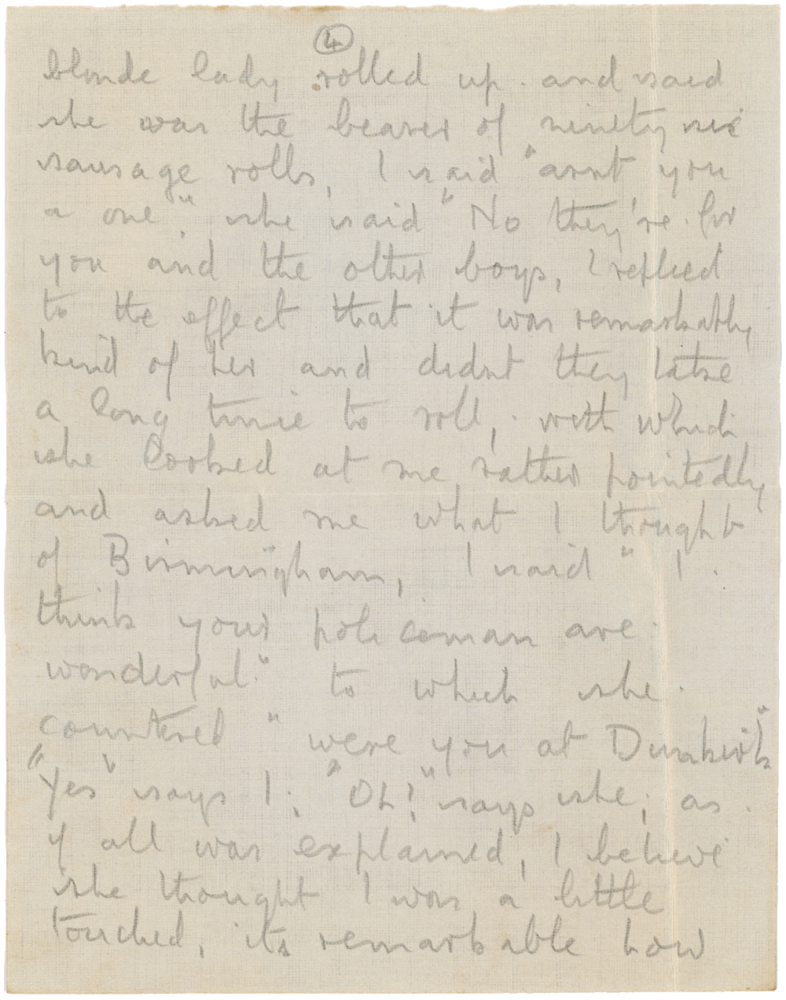 4
blonde lady rolled up. and said
she was the bearer of ninety six
sausage rolls, I said "arnt you
a one", she said "No they're for
you and the other boys, I replied
to the effect that it was remarkably
kind of her and didnt they take
a long time to roll, with which
she looked at me rather pointedly
and asked me what I thought
of Birmingham, I said " I
think your policeman are
wonderful." to which she
countered " were you at Dunkirk"
"Yes" says I; "Oh!" says she; as
if all was explained, I believe
she thought I was a little
touched, its remarkable how